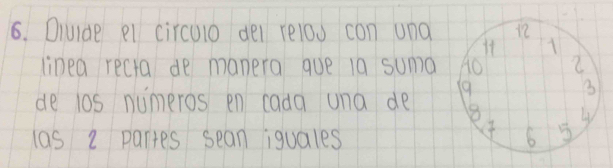 6. Divide el circulo del reloj con una
linea recta de manera que la suma
de los números en cada una de
las 2 partes sean iguales
12
11 1
10 2
9 3
8 4
7 6 5